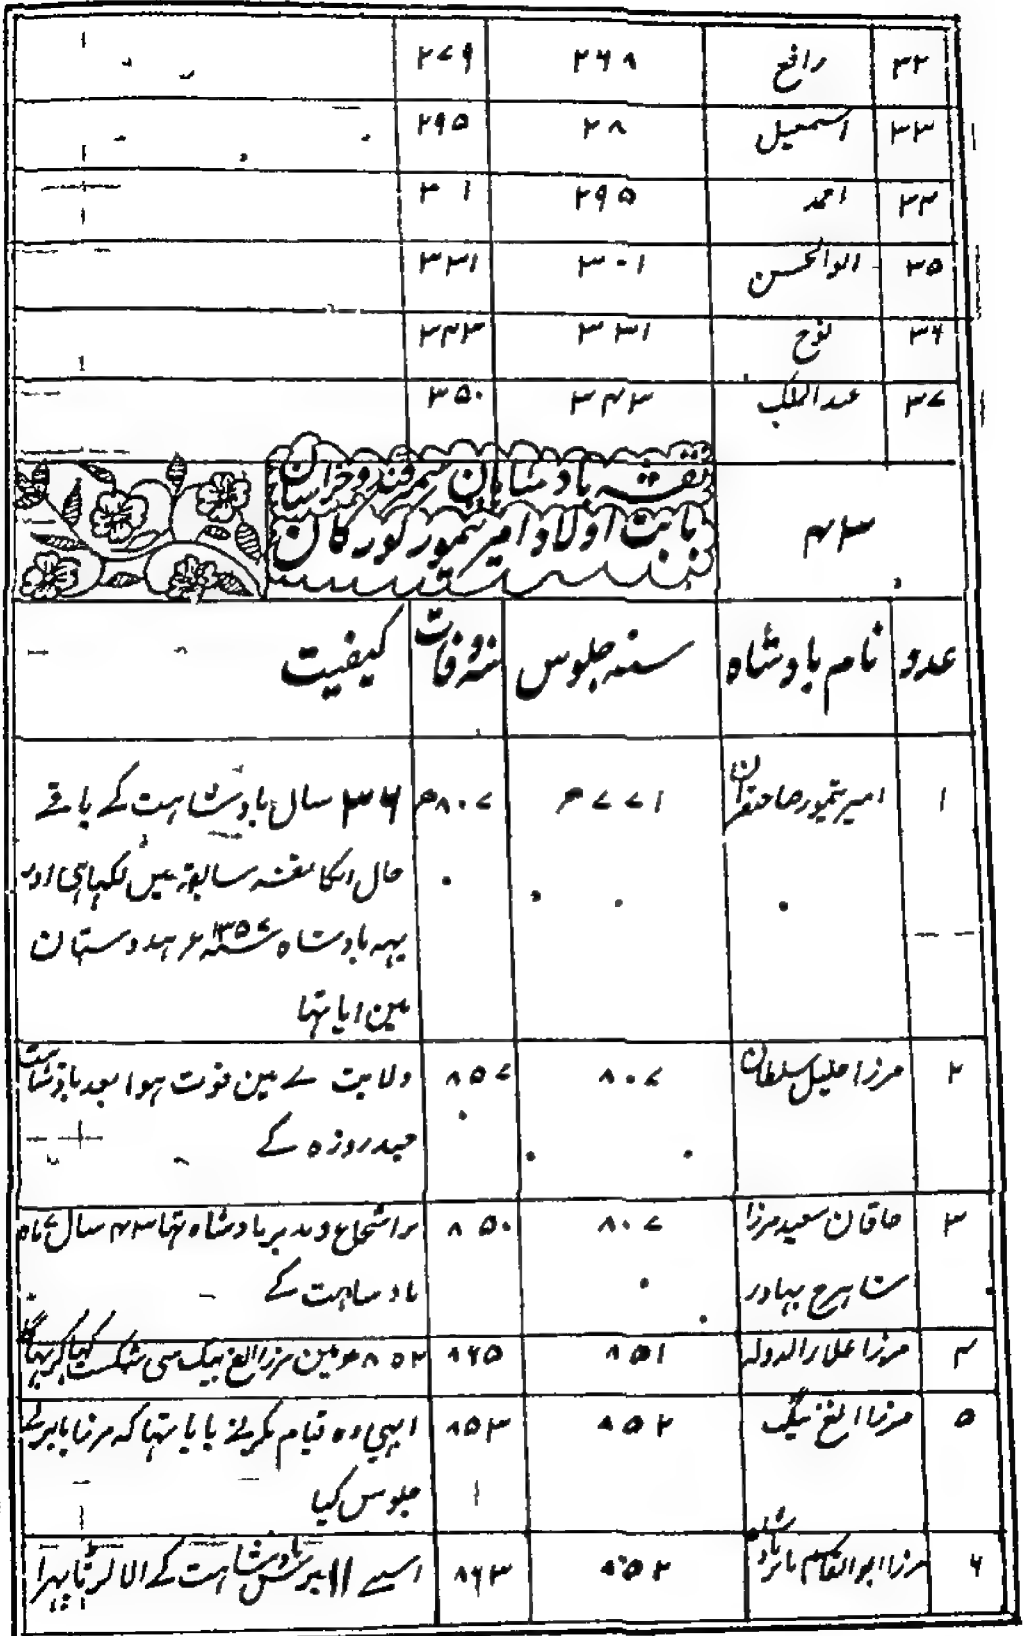 ۳۲ رافع ۲۶۸ ۲۷۹
۳۳ اسمعیل ۲۸ ۲۹۵
۳۴ احمد ۲۹۵ ۳ ۱
۳۵ ابوالحسن ۳۰۱ ۳۳۱
۳۶ نوح ۳۳۱ ۳۴۳
۳۷ عبدالملک ۳۴۳ ۳۵۰
۴۳ نقشہ بادشاہان سمرقند و خراسان
بابت اولاد امیر تیمور گورگان
عدد نام بادشاہ سنہ جلوس سنہ وفات کیفیت
۱ امیر تیمور صاحبقران ۷۷۱ھ ۸۰۷ھ ۳۶ سال بادشاہت کے باقے
حال انکا نقشہ سابقہ میں لکہا ہی اور
یہہ بادشاہ ۱۳۵۷ء ہندوستان
مین ایا تہا
۲ مرزا خلیل سلطان ۸۰۷ ۸۵۷ ولایت لے مین فوت ہوا بعد بادشاہت
چند روزہ کے
۳ خاقان سعید مرزا ۸۰۷ ۸۵۰ برا شجاع و مدبر بادشاہ تہا ۴۳ سال ماہ
شاہرخ بہادر بادشاہت کے
۴ مرزا علاء الدولہ ۸۵۱ ۸۶۵ ۸۵۲ھ مین مرزا الغ بیگ سی شکست کہا کر بہاگا
۵ مرزا الغ بیگ ۸۵۲ ۸۵۳ ابہی وہ قیام نکرنے پایا تہا کہ مرزا بابر نے
جلوس کیا
۶ مرزا ابوالقاسم بابر ۸۵۲ ۸۶۳ اسنے ۱۱ برس بادشاہت کے